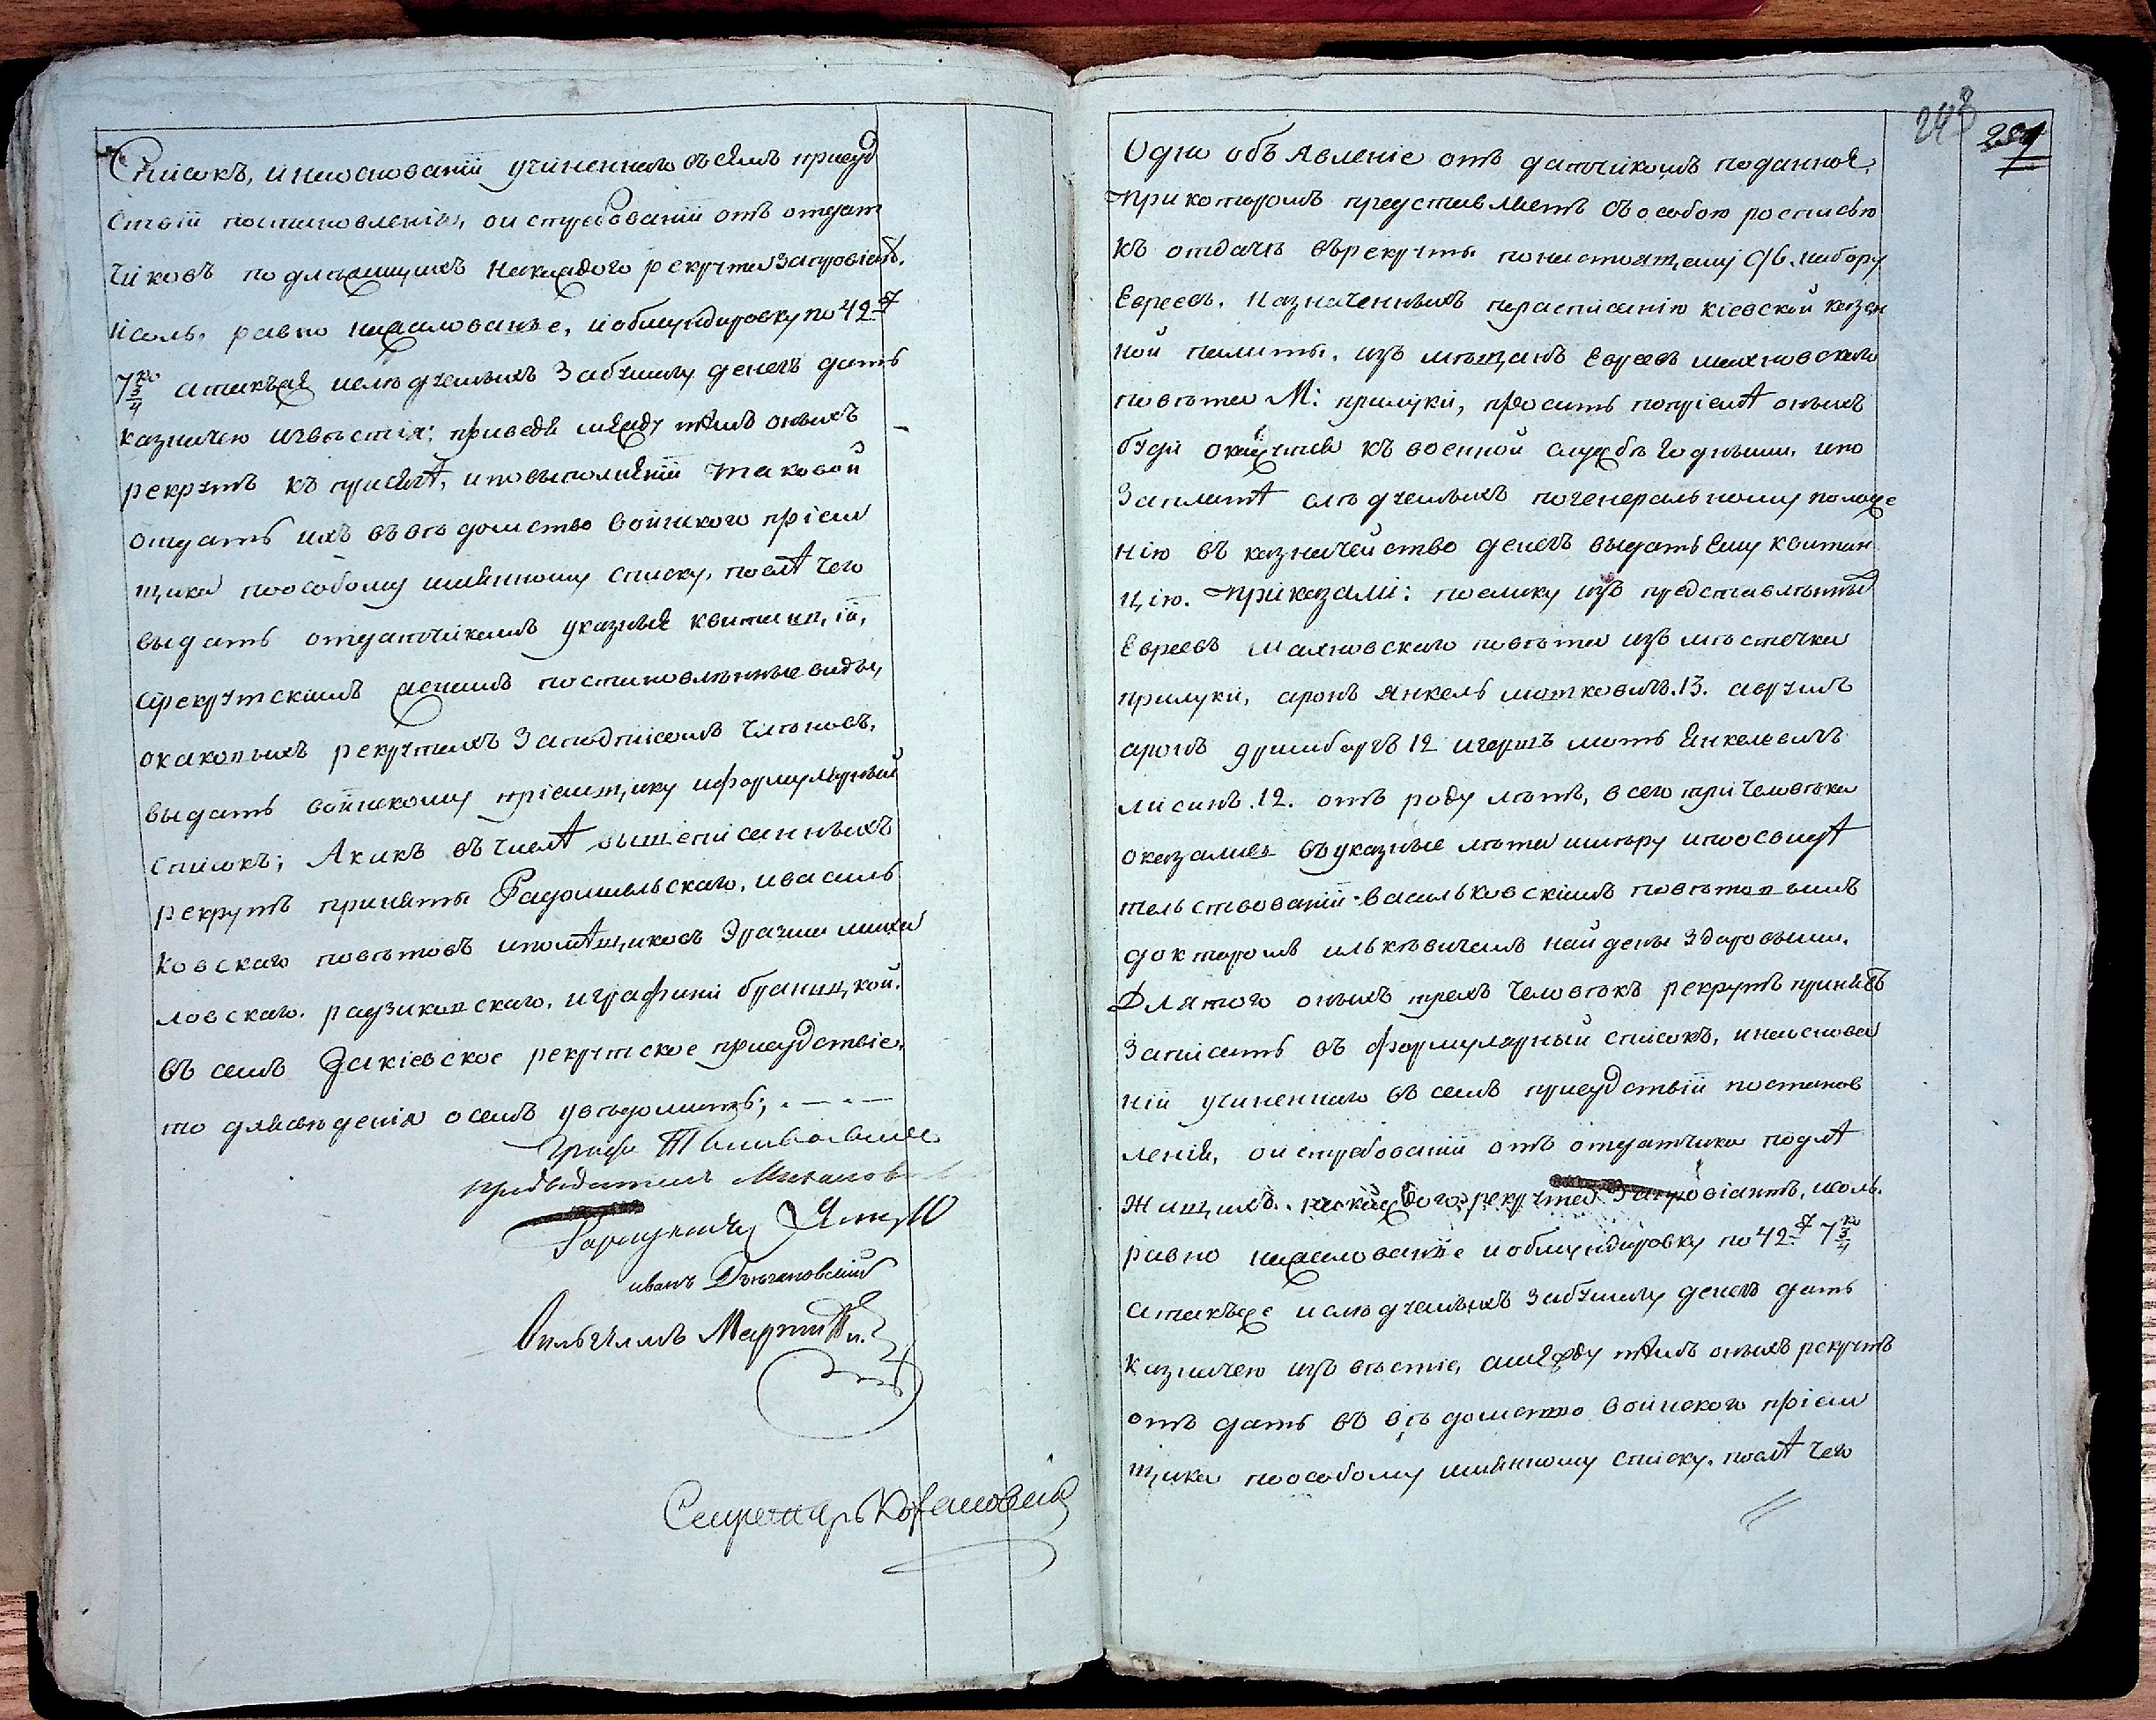 Списокъ, инаоснованіи учиненнаго въсѣмъ присуд
ствіи постановленія, оистребованіи отъ отдат
чиковъ подлѣжащихъ накаждого рекрута запровіантъ,
исоль, равно нажалованье, иобмундировку по 42 р
7 ко 3/4 атакъже ислѣдуемыхъ забумагу денегъ дать
казначею извѣстія; приведя между тѣмъ оныхъ
рекрутъ къ присягѣ, иповыполненіи таковой
отдать ихъ въвѣдомство воинского пріем
щика поособому имянному списку, послѣ чего
выдать отдатчикамъ указныя квитанціи,
арекрутскимъ женамъ постановлѣнные виды,
окаковыхъ рекрутахъ заподписомъ членовъ,
выдать воинскому пріемщику иформулярный
списокъ; Акакъ въчислѣ вышеписанныхъ
рекрутъ приняты Радомысльскаго, ивасиль
ковскаго повѣтовъ ипомѣщиковъ Эразма михай
ловскаго. радзиковскаго, играфини браницкой.
въ семъ закіевское рекрутское присудствіе,
то длясвѣденія осемъ увѣдомить; . — . —
предводитель
иванъ
Вильгелмъ
Секретарь
248
Одно объявленіе отъ датчикомъ поданноя,
прикоторомъ представляетъ съособою росписью
къ отдачѣ върекруты понастоящему 96. набору
Евреевъ. назначенныхъ порасписанію кіевской казен
ной палаты. изъ мѣщанъ Евреевъ махновскаго
повѣта М: прилуки, проситъ попріемѣ оныхъ
буди окажутся къ военной службѣ годными, ипо
заплатѣ слѣдуемыхъ погенеральному положе
нію въ казначейство денегъ выдать Ему квитан
цію. приказали: поелику изъ представлѣнны
Евреевъ махновскаго повѣта изъ мѣстечка
прилуки, аронъ янкель мошковичъ.13. аврумъ
аронъ 12 игершъ мотъ Янкелевичъ
лисинъ.12. отъ роду лѣтъ, всего три человѣка
оказались въуказные лѣта имѣру ипоосвидѣ
тельствованіи васильковскимъ повѣтовымъ
докторомъ найдены здоровыми.
Длятого оныхъ трехъ человѣкъ рекрутъ принявъ
записать въ формулярный списокъ, инаоснова
ніи учиненнаго въ семъ присудствіи постанов
ленія, оистребованіи отъ отдатчика подлѣ
жащихъ. накаждого рекрута запровіантъ, исоль.
равно нажалованье иобмундировку по 42 р 7 ко 3/4
атакъже ислѣдуемыхъ забумагу денегъ дать
казначею извѣстіе, амежду тѣмъ оныхъ рекрутъ
отъ дать въ вѣдомство воинского пріем
щика поособому имянному списку. послѣ чего